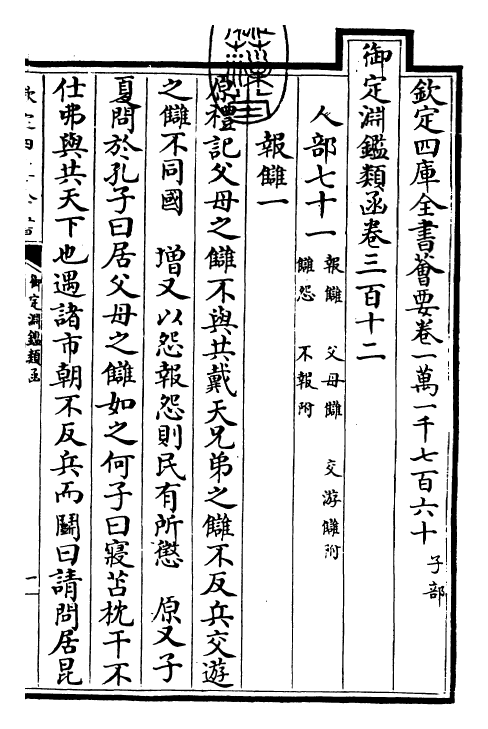 欽定四庫全書薈要卷一萬一千七百六十 子部
御定淵鑑類函卷三百十二
人部七十一 報讎 父母讎 交游讎附
讎怨 不報附
報讎一
原禮記父母之讎不與共戴天兄弟之讎不反兵交遊
之讎不同國 增又以怨報怨則民有所懲 原又子
夏問於孔子曰居父母之讎如之何子曰寢苫枕干不
仕弗與共天下也遇諸市朝不反兵而鬭曰請問居昆
御定淵鑑類函
一